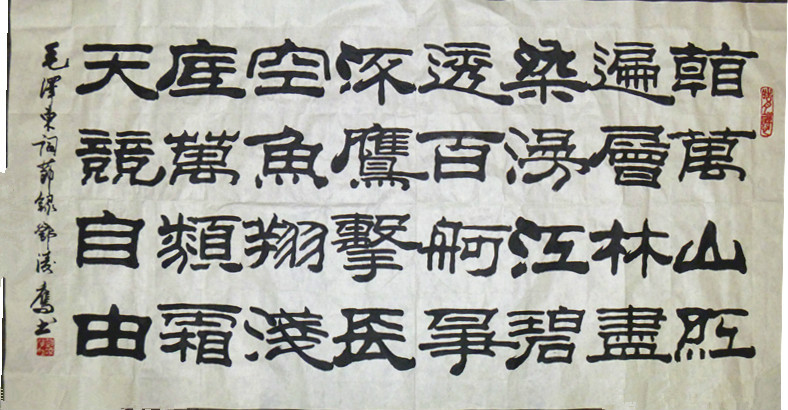 看萬山紅
遍層林盡
染漫江碧
透百舸爭
流鷹擊長
空魚翔淺
底萬類霜
天競自由
毛澤東詞節錄鄧 书